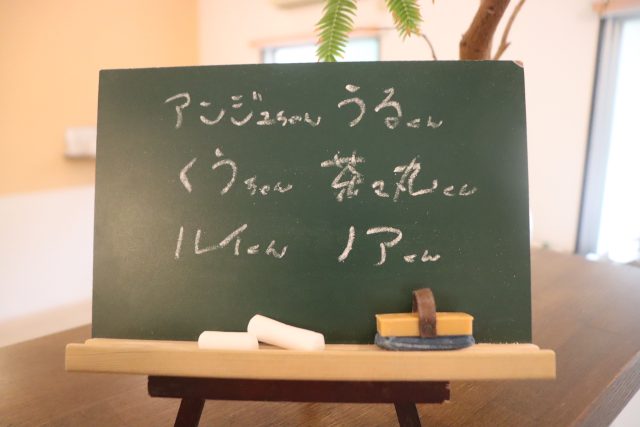 アンジュちゃん うるくん
くうちゃん 茶々丸くん
ルイくん ノアくん